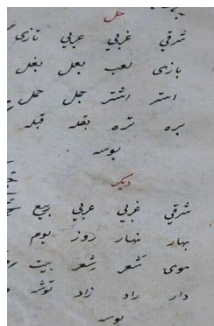 حل
شرقي غربي عربي تازى
بازى لعب بعل بغل
استر اشتر جمل حمل
بره تره بقله قبله
بوسه
ديكر
شرقي غربي عربي ربيع
بهار نهار روز يوم
موى شعر شعر بيت
دار راد زاد توشه
بوسه